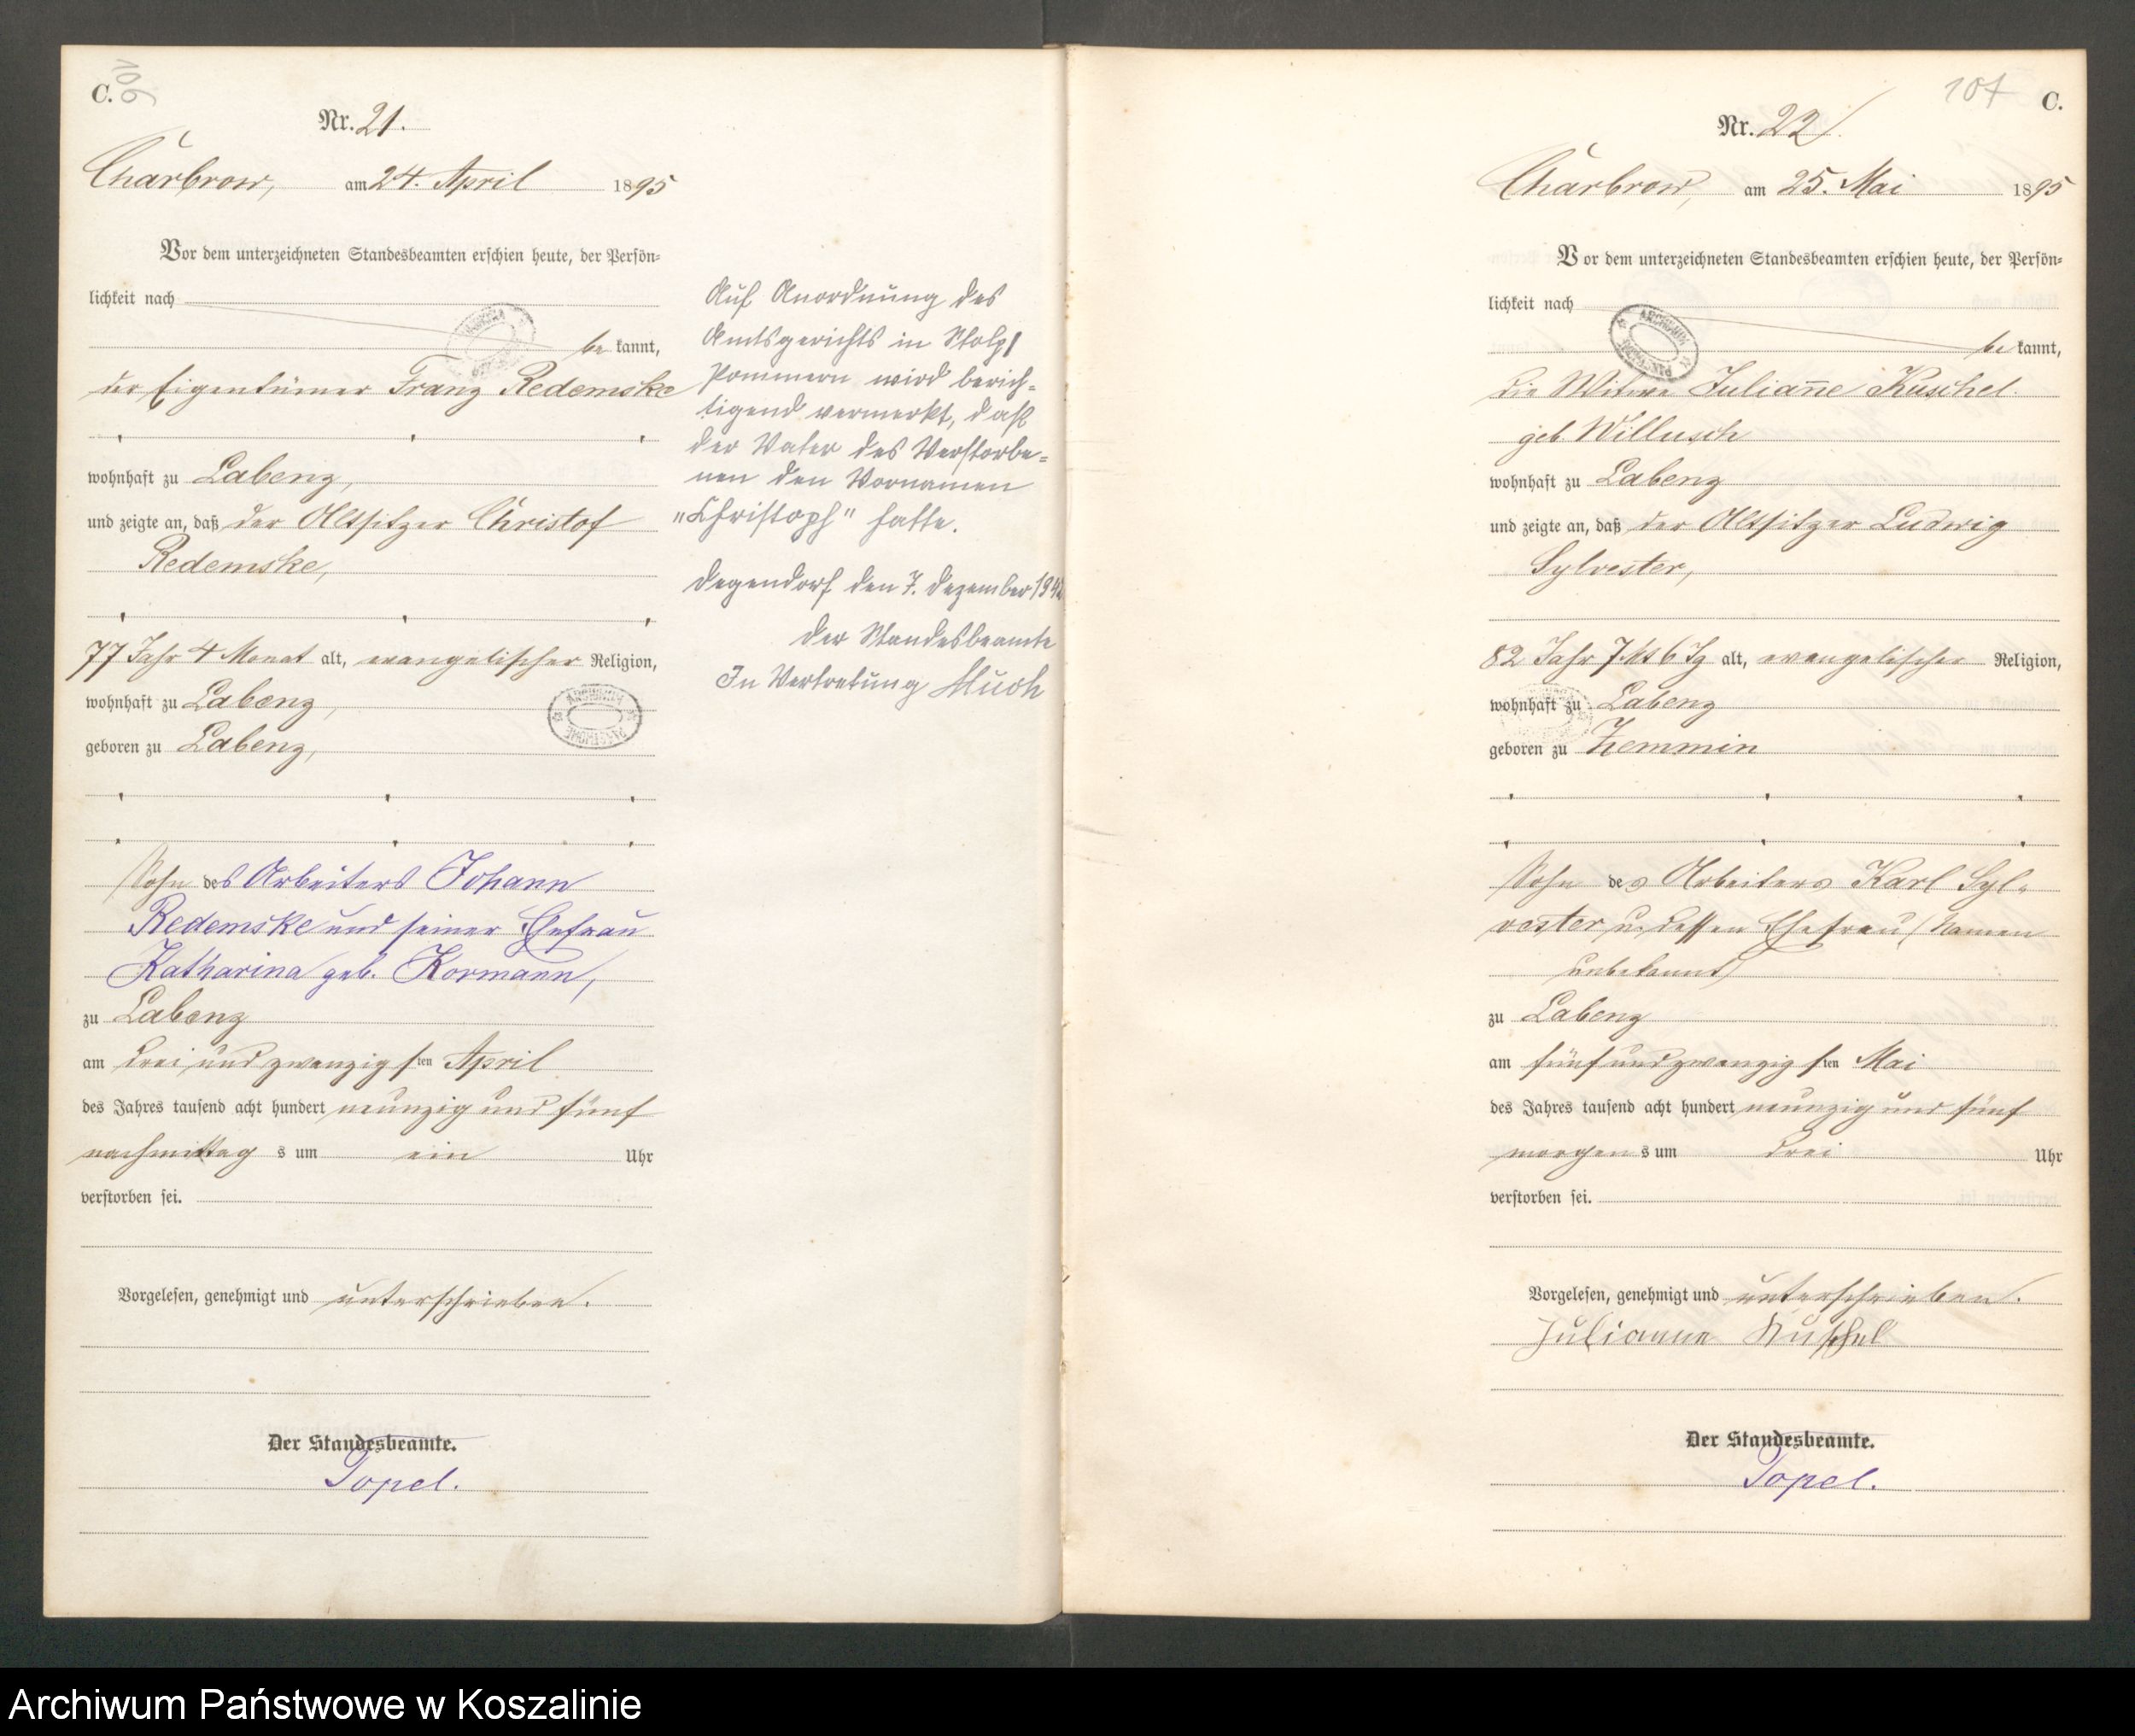 C.
106
Nr. 21.
Charbrow, am 24. April 1895
Vor dem unterzeichneten Standesbeamten erschien heute, der Persön-
lichkeit nach
be kannt,
der Eigentümer Franz Redemske
wohnhaft zu Labenz,
und zeigte an, daß der Altsitzer Christof
Redemske,
77 Jahr 4 Monat alt, evangelischer Religion,
wohnhaft zu Labenz,
geboren zu Labenz,
Sohn des Arbeiters Johann
Redemske und seiner Ehefrau
Katharina geb. Kormann,
zu Labenz
am drei und zwanzigsten April
des Jahres tausend acht hundert neunzig und fünf
nachmittag s um ein Uhr
verstorben sei.
Vorgelesen, genehmigt und unterschrieben.
Der Standesbeamte.
Topel.
Auf Anordnung des
Amtsgerichts in Stolp/
Pommern wird berich-
tigend vermerkt, daß
der Vater des Verstorbe-
nen den Vornamen
"Christoph" hatte.
Degendorf den 7. Dezember
Der Standesbeamte
In Vertretung
107 C.
Nr. 22.
Charbrow, am 25. Mai 1895
Vor dem unterzeichneten Standesbeamten erschien heute, der Persön-
lichkeit nach
be kannt,
die Witwe Julian̅e Kuschel.
geb. Willusch
wohnhaft zu Labenz
und zeigte an, daß der Altsitzer Ludwig
Sylvester,
82 Jahr 7 Mt 6 Tg alt, evangelischer Religion,
wohnhaft zu Labenz
geboren zu Zemmin
Sohn des Arbeiters Karl Syl-
vester u. dessen Ehefrau (Namen
unbekannt)
zu Labenz
am fünfundzwanzigsten Mai
des Jahres tausend acht hundert neunzig und fünf
morgen s um drei Uhr
verstorben sei.
Vorgelesen, genehmigt und unterschrieben.
Julianne Kuschel
Der Standesbeamte.
Topel.
Archiwum Państwowe w Koszalinie